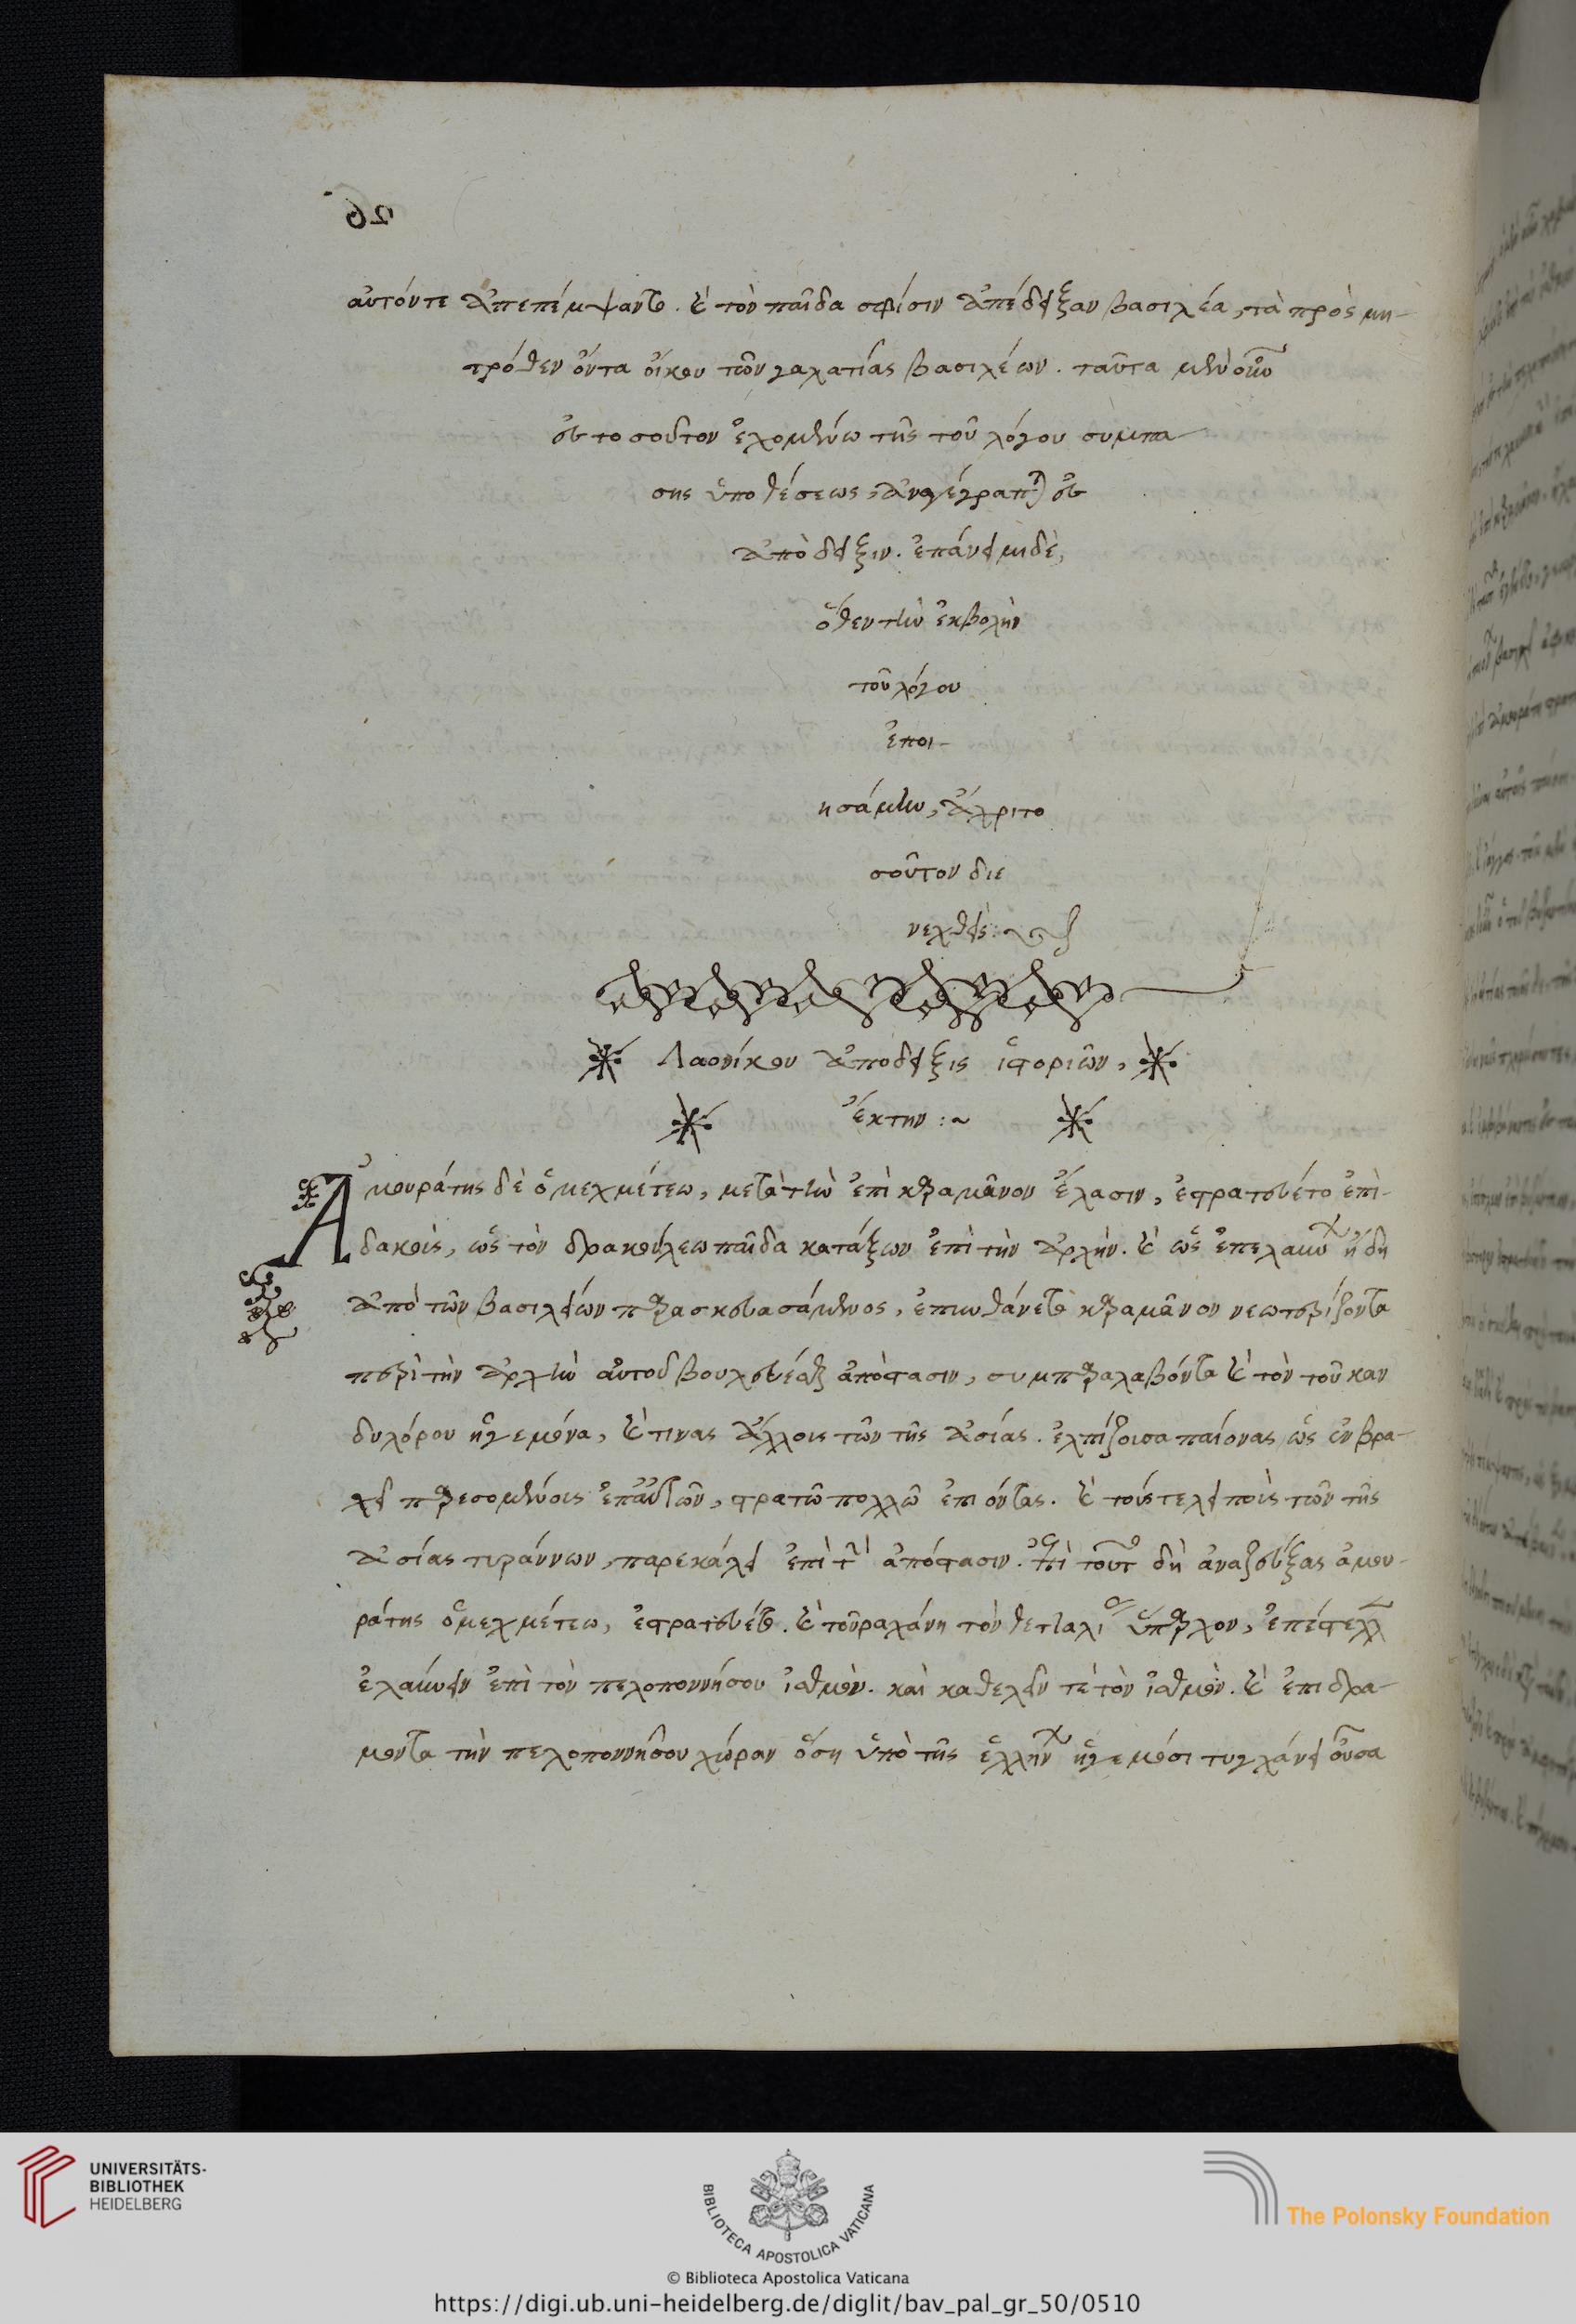 26
αὐτόν τε ἀπεπέμψαντο. καὶ τὸν παῖδα σφίσιν ἀπέδειξαν βασιλέα, τὰ πρὸς μη-
τρόθεν ὄντα οἴκου τῶν γαλατίας βασιλέων. ταῦτα μὲν οὖν
ἐς τοσοῦτον ἐχομένω τῆς τοῦ λόγου συμπά
σης ὑποθέσεως, ἀναγέγραπται ἐς
ἀπόδειξιν. ἐπάνειμι δὲ,
ὅθεν τὴν ἐκβολὴν
τοῦ λόγου
ἐποι-
ησάμην, ἄχρι το
σοῦτον διε
νεχθείς:
Λαονίκου ἀπόδειξις ἱστοριῶν,
ἕκτην:~
Ἀμουράτης δὲ ὁ μεχμέτεω, μετὰ τὴν ἐπὶ καραμᾶνον ἔλασιν, ἐστρατεύετο ἐπὶ
δακοὺς, ὡς τὸν δρακούλεω παῖδα κατάξων ἐπὶ τὴν ἀρχήν. καὶ ὡς ἐπελαύνων ἤδη
ἀπὸ τῶν βασιλείων παρασκευασάμενος, ἐπυνθάνετο καραμᾶνον νεωτερίζοντα
περὶ τὴν ἀρχὴν αὐτοῦ βουλεύεσθαι ἀπόστασιν, συμπαραλαβόντα καὶ τὸν τοῦ καν
δυλόρου ἡγεμόνα, καί τινας ἄλλους τῶν τῆς ἀσίας. ἐλπίζουσα παίονας ὡς ἐν βρα-
χεῖ παρεσομένους ἐπ' αὐτὸν, στρατῷ πολλῷ ἐπιόντας. καὶ τούς τε λειποὺς τῶν τῆς
ἀσίας τυράννων, παρεκάλει ἐπὶ τὴν ἀπόστασιν. ἐπὶ τοῦτον δὴ ἀναζεύξας ἀμου-
ράτης ὁ μεχμέτεω, ἐστρατεύετο. καὶ τουραχάνη τὸν θετταλίας ὕπαρχον, ἐπέστελλεν
ἐλαύνειν ἐπὶ τὸν πελοποννήσου ἰσθμόν. καὶ καθελεῖν τε τὸν ἰσθμόν. καὶ ἐπιδρα-
μόντα τὴν πελοποννήσου χώραν ὅση ὑπὸ τῆς ἑλλήνων ἡγεμόσι τυγχάνει οὖσα
UNIVERSITÄTS-
BIBLIOTHEK
HEIDELBERG
BIBLIOTECA APOSTOLICA VATICANA
© Biblioteca Apostolica Vaticana
The Polonsky Foundation
https://digi.ub.uni-heidelberg.de/diglit/bav_pal_gr_50/0510